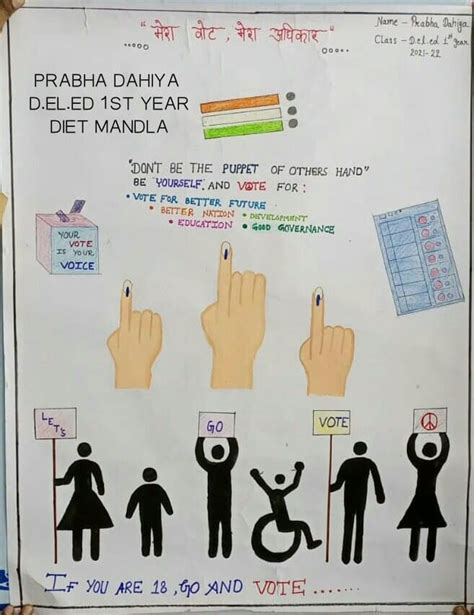 " मेरा वोट, मेरा अधिकार "
Name - Prabha Dahiya
Class - D.el.ed 1st Year
2021-22
PRABHA DAHIYA
D.EL.ED 1ST YEAR
DIET MANDLA
"DON'T BE THE PUPPET OF OTHERS HAND"
BE YOURSELF, AND VOTE FOR :
• VOTE FOR BETTER FUTURE
• BETTER NATION • DEVELOPMENT
• EDUCATION • GOOD GOVERNANCE
YOUR
VOTE
IS YOUR
VOICE
LET'S
GO
VOTE
IF YOU ARE 18, GO AND VOTE ......